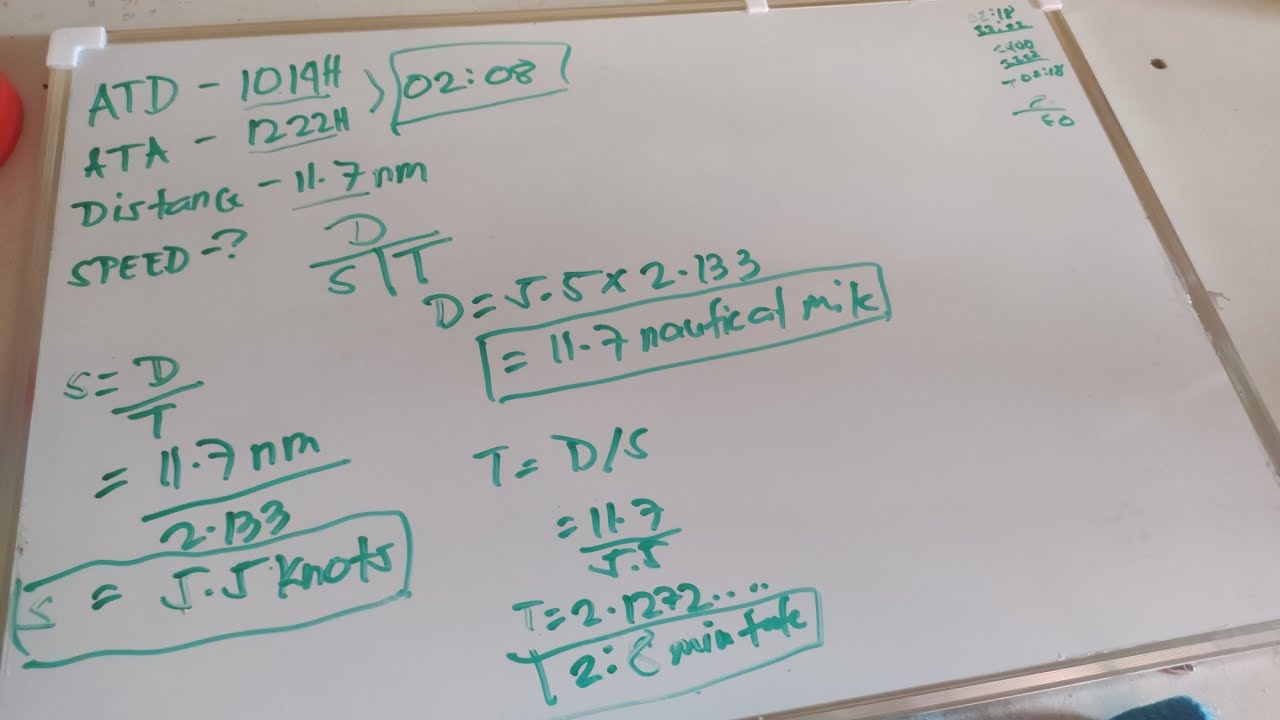 ATD - 1014H
ATA - 1222H
02:08
Distance - 11.7 nm
SPEED = ?
D
S | T
D = 5.5 x 2.133
= 11.7 nautical mile
S = D
T
= 11.7 nm
2.133
S = 5.5 knots
T = D/S
= 11.7
5.5
T = 2.1272....
2:8
02:18
60